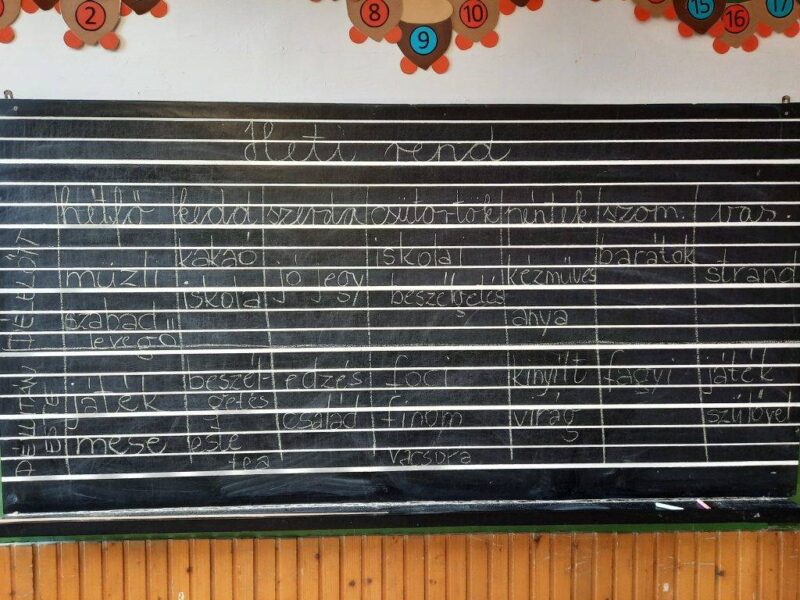 2
8
9
10
15
16
17
Heti rend
hétfő kedd szerda csütörtök péntek szom. vas.
DÉLELŐTT
kakaó iskola barátok
müzli jó jegy kézműves strand
iskola beszélgetés
szabad anya
levegő
DÉLUTÁN
ESTE
beszél- edzés foci kinyílt fagyi játék
játék getés család finom virág szülővel
mese este
tea vacsora